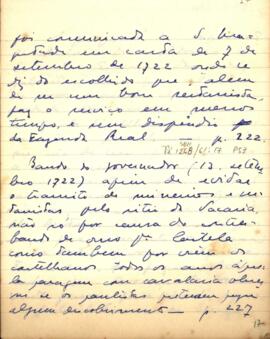 foi communicada a S. Mag
estade em carta de 7 de
setembro de 1722 onde se
diz do escolhido que alem
de ser bom sertanista,
faz o serviço em menos
tempo, e sem dispendio
da Fazenda Real. p. 222
Bando do governador (12, setem
bro 1722) afim de evitar
o transito de mineiros e ser
tanistas pelo sitio da Vacaria
não só por causa do contra
bando de ouro p.ª Castela
como tambem por virem os
castelhanos todos os annos áque
la paragem com cavalaria
se os paulistas
algum descobrimento — p. 227